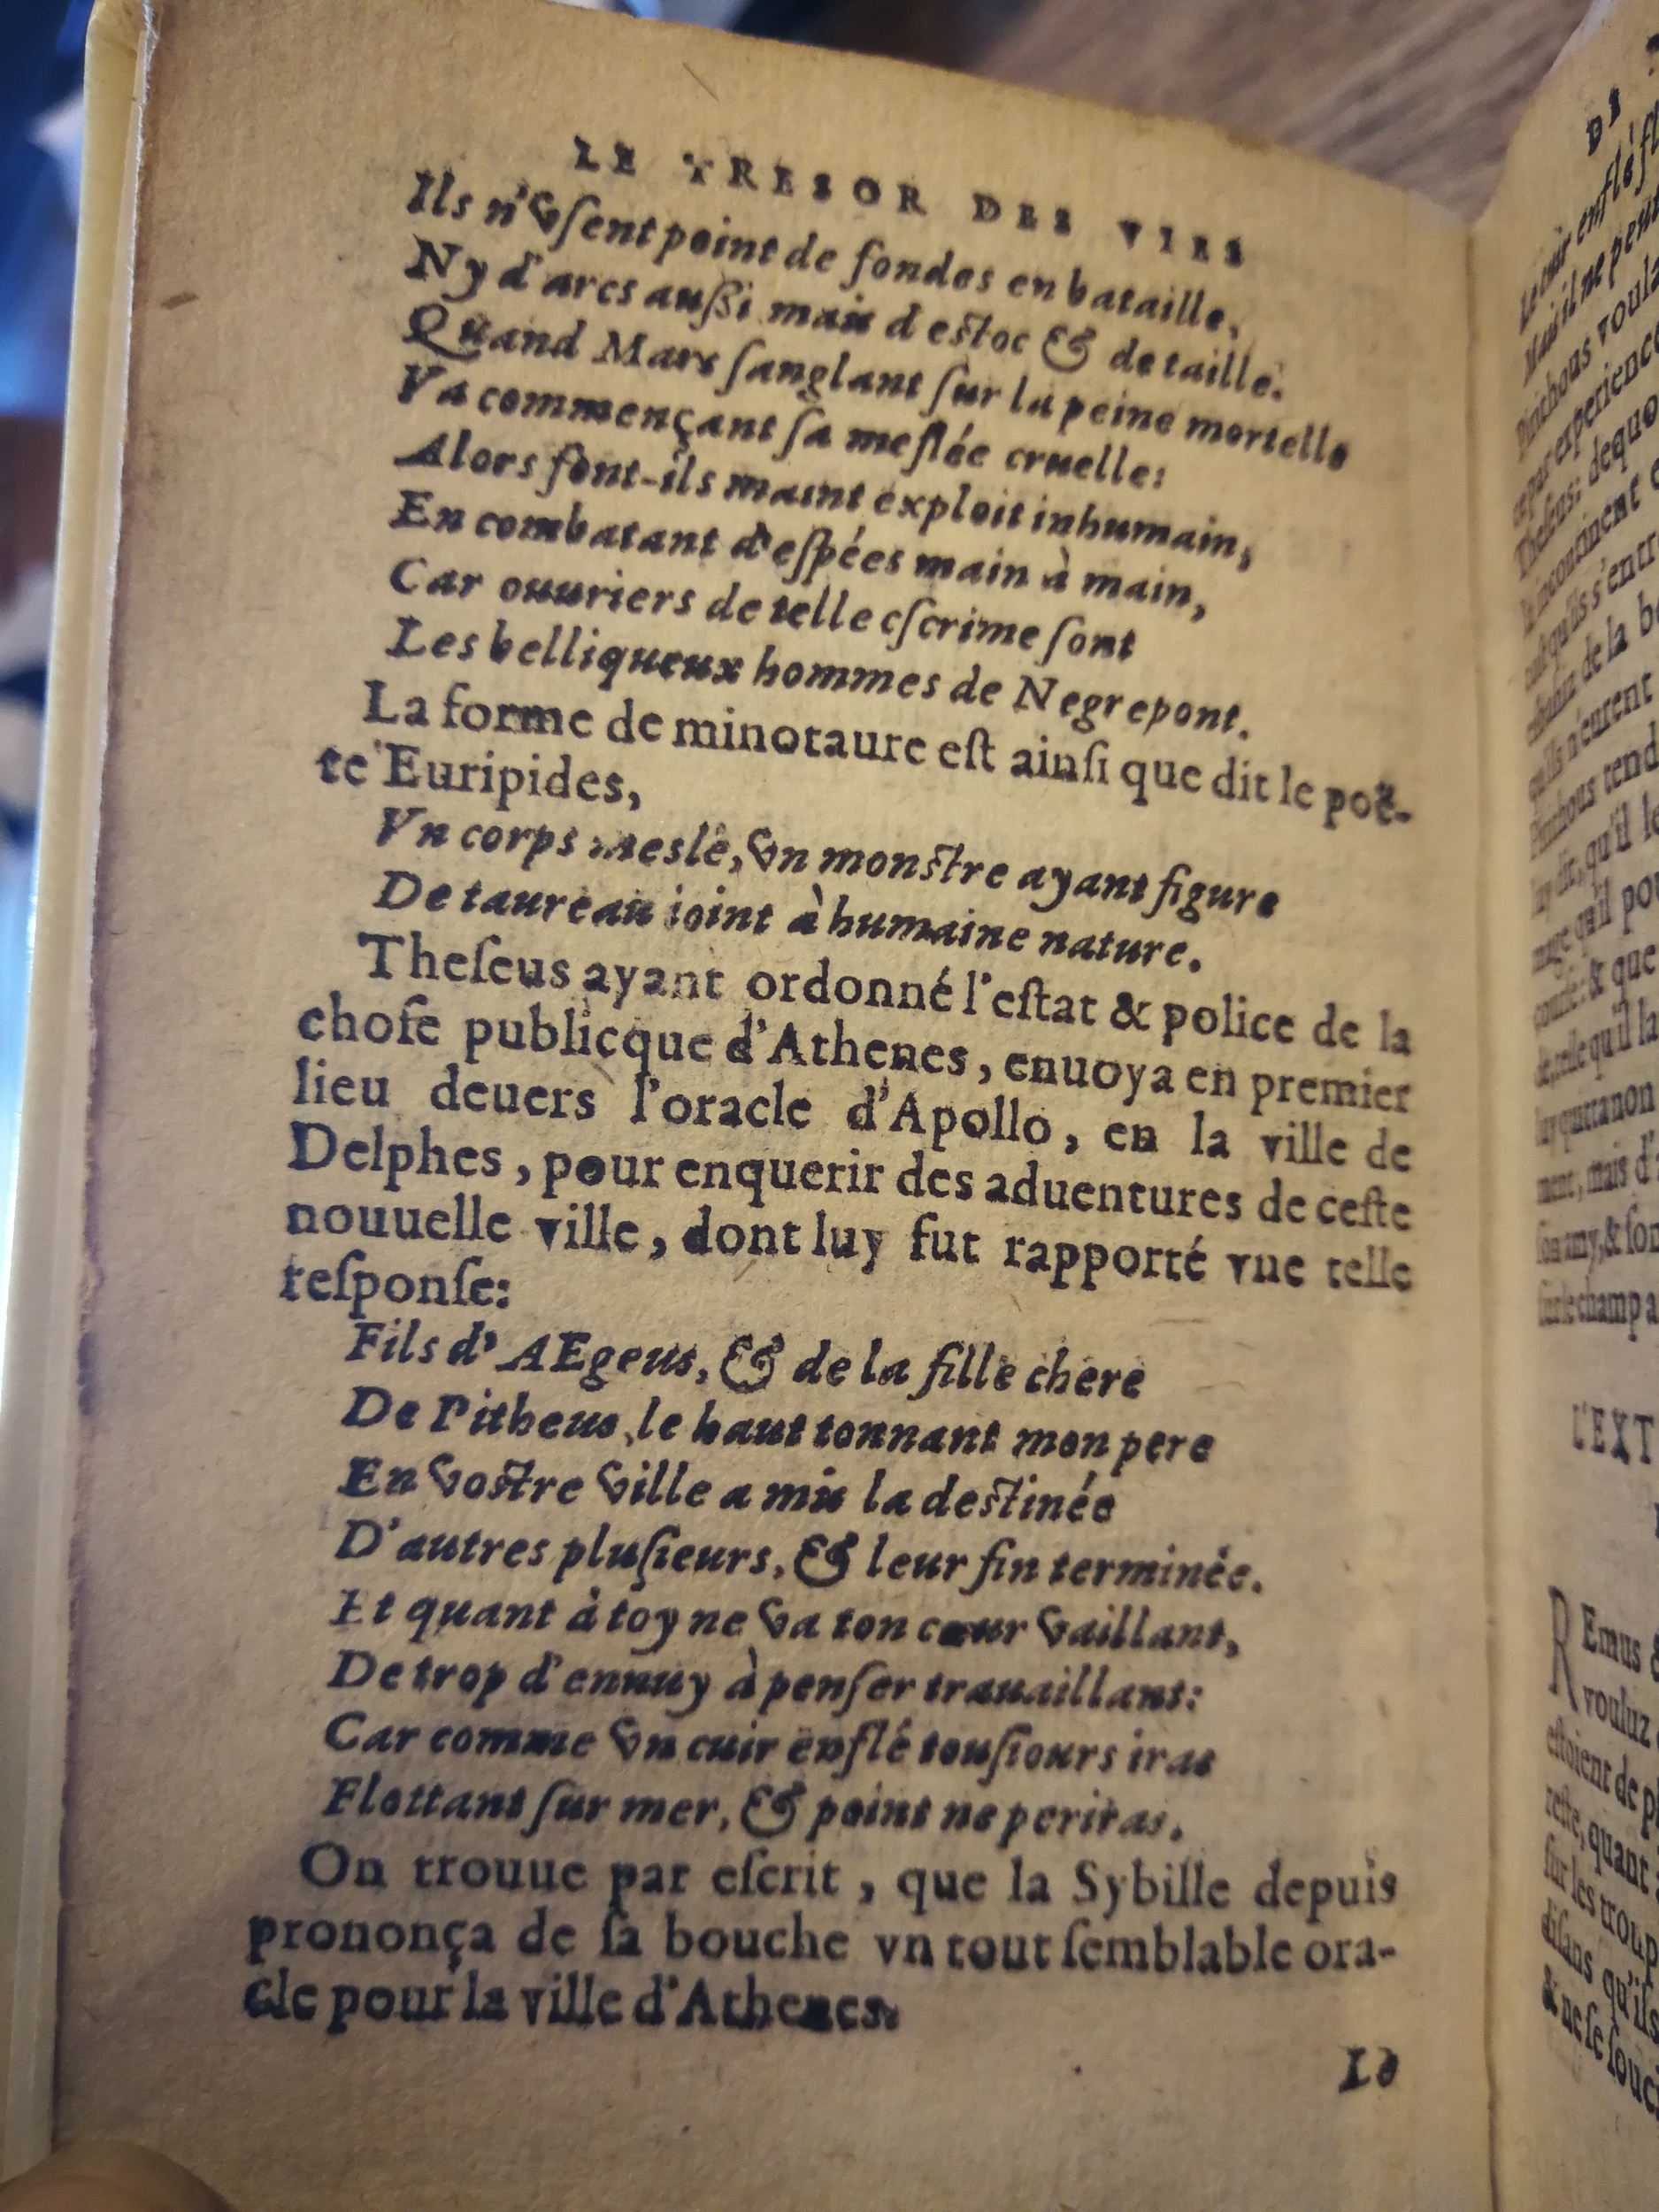 LE TRESOR DES VIES
Ils n'vſent point de fondes en bataille,
Ny d'arcs auſſi mais d'estoc & de taille.
Quand Mars ſanglant ſur la peine mortelle
Va commençant ſa meſlée cruelle:
Alors font-ils maint exploit inhumain,
En combatant d'eſpées main à main,
Car ouuriers de telle eſcrime ſont
Les belliqueux hommes de Negrepont.
La forme de minotaure eſt ainſi que dit le poë-
te Euripides,
Vn corps meslé, vn monstre ayant figure
De taureau ioint à humaine nature.
Theſeus ayant ordonné l'eſtat & police de la
choſe publicque d'Athenes, enuoya en premier
lieu deuers l'oracle d'Apollo, en la ville de
Delphes, pour enquerir des aduentures de ceſte
nouuelle ville, dont luy fut rapporté vne telle
reſponſe:
Fils d'AEgeus, & de la fille chere
De Pitheus, le haut tonnant mon pere
En vostre ville a mis la destinée
D'autres pluſieurs, & leur fin terminée.
Et quant à toy ne va ton cœur vaillant,
De trop d'ennuy à penſer trauaillant:
Car comme vn cuir enflé touſiours iras
Flottant ſur mer, & point ne periras.
On trouue par eſcrit, que la Sybille depuis
prononça de ſa bouche vn tout ſemblable ora-
cle pour la ville d'Athenes.
Le
DE
Le cuir enflé
Mais il ne peut
Pirithous
experience
Theſeus: dequo
incontinent
qu'ils s'entr
de la
n'eurent
Pirithous tend
luy dit, qu'il le
qu'il pou
& que
de telle qu'il la
mais d'
ſon amy, & ſon
ſur le champ a
L'EXT
REmus &
vouluz
eſtoient de pl
reſte, quant
ſur les troup
diſans qu'ils
& ne ſe ſouci